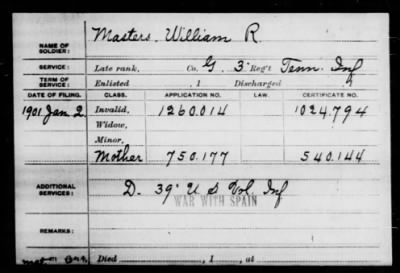 Masters, William R.
NAME OF SOLDIER:
SERVICE: Late rank, Co. G, 3" Reg't Tenn. Inf
TERM OF SERVICE: Enlisted , 1 Discharged
DATE OF FILING. CLASS. APPLICATION NO. LAW. CERTIFICATE NO.
1901 Jan 2. Invalid, 1260.014 1024.794
Widow,
Minor,
Mother 750.177 540.144
ADDITIONAL SERVICES: D. 39" U S Vol. Inf
WAR WITH SPAIN
REMARKS:
Died , 1 , at